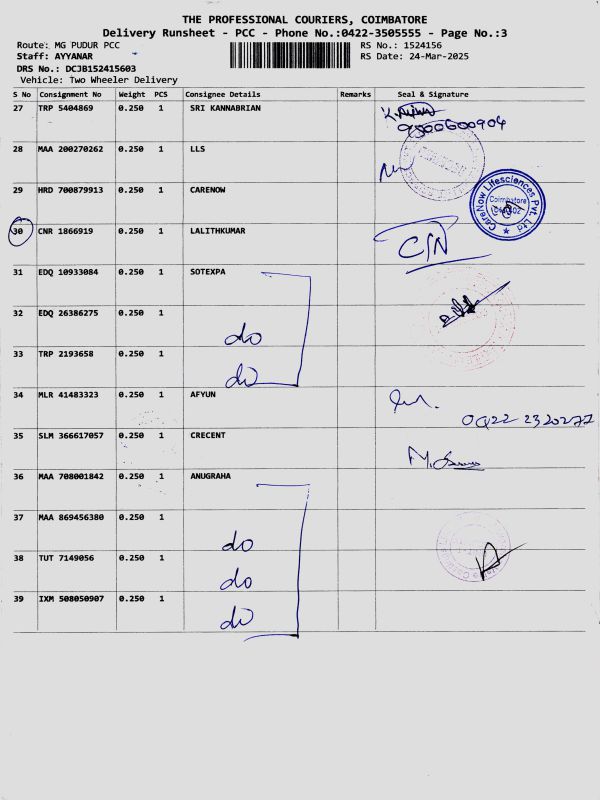 THE PROFESSIONAL COURIERS, COIMBATORE
Delivery Runsheet - PCC - Phone No.:0422-3505555 - Page No.:3
Route: MG PUDUR PCC RS No.: 1524156
Staff: AYYANAR RS Date: 24-Mar-2025
DRS No.: DCJB152415603
Vehicle: Two Wheeler Delivery
S No Consignment No Weight PCS Consignee Details Remarks Seal & Signature
27 TRP 5404869 0.250 1 SRI KANNABRIAN
9500600904
28 MAA 200270262 0.250 1 LLS
29 HRD 700879913 0.250 1 CARENOW
CareNow Lifesciences Pvt. Ltd
Coimbatore
30 CNR 1866919 0.250 1 LALITHKUMAR C/N
31 EDQ 10933084 0.250 1 SOTEXPA
32 EDQ 26386275 0.250 1 do
33 TRP 2193658 0.250 1 do
34 MLR 41483323 0.250 1 AFYUN
0422 2320277
35 SLM 366617057 0.250 1 CRECENT
36 MAA 708001842 0.250 1 ANUGRAHA
37 MAA 869456380 0.250 1 do
38 TUT 7149056 0.250 1 do
39 IXM 508050907 0.250 1 do